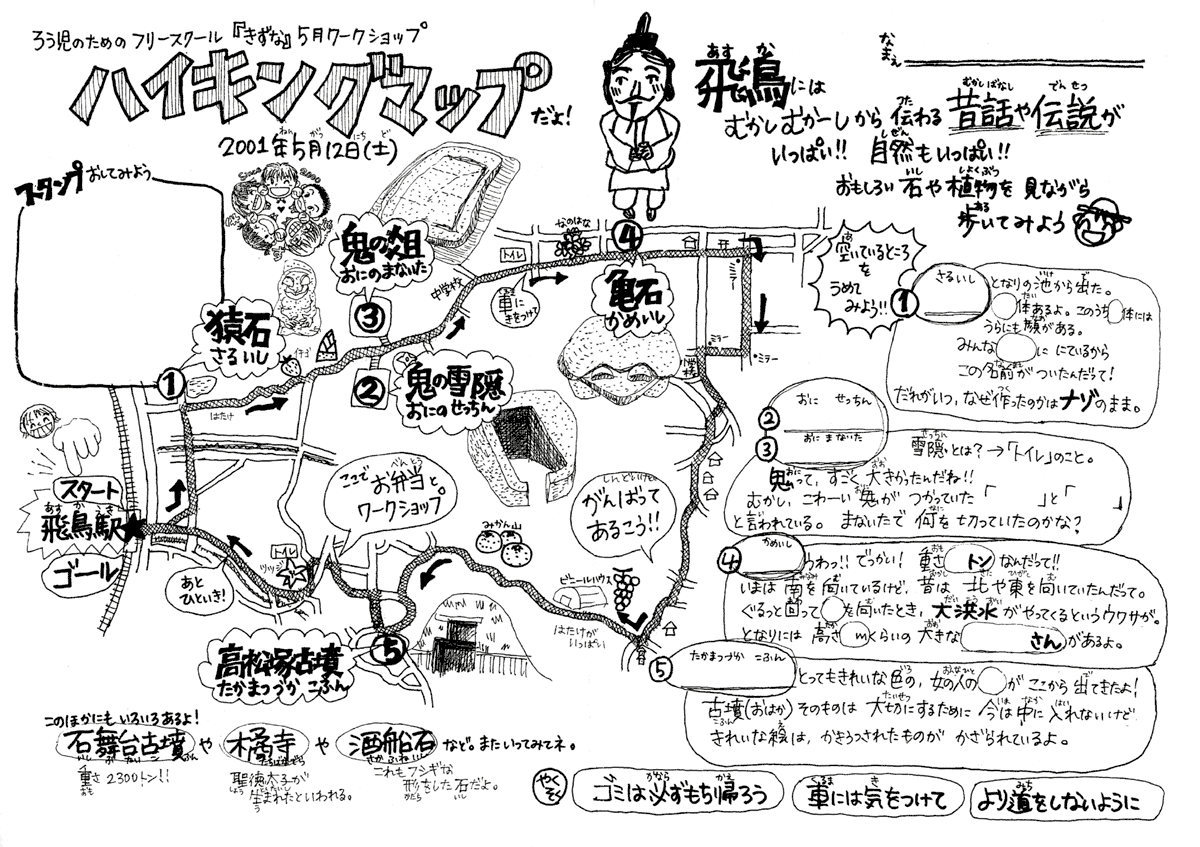 ろう児のための フリースクール『きずな』5月ワークショップ
ハイキングマップだよ!
2001年5月12日(土)
スタンプおしてみよう
なまえ
飛鳥には
むかしむかーしから 伝わる 昔話や伝説が
いっぱい!! 自然もいっぱい!!
おもしろい 石や植物を 見ながら
歩いてみよう
空いているところ
を
うめて
みよう!!
① さるいし
となりの池から出た。
体あるよ。このうち 体には
うらにも顔がある。
みんな にているから
この名前がついたんだって!
だれがいつ、なぜ作ったのかはナゾのまま。
② おに せっちん
③ おに まないた
雪隠とは?→「トイレ」のこと。
鬼って、すごく大きかったんだね!!
むかし、こわーい鬼がつかっていた「 」と「 」
と言われている。まないたで何を切っていたのかな?
④ かめいし
うわっ!! でっかい! 重さ トンなんだって!!
いまは南を向いているけど、昔は北や東を向いていたんだって。
ぐるっと回って を向いたとき、大洪水がやってくるというウワサが。
となりには 高さ mくらいの 大きな さんがあるよ。
⑤ たかまつづか こふん
とってもきれいな色の、女の人の がここから出てきたよ!
古墳(おはか)そのものは 大切にするために 今は中に入れないけど
きれいな線は、かきうつされたものが かざられているよ。
①
猿石
さるいし
②
鬼の雪隠
おにのせっちん
③
鬼の俎
おにのまないた
④
亀石
かめいし
⑤
高松塚古墳
たかまつづか こふん
スタート
飛鳥駅
ゴール
はたけ
イチゴ
中学校
トイレ
車に
きをつけて
なのはな
ミラー
ミラー
ミラー
小学校
しんどいけど
がんばって
あるこう!!
ビニールハウス
はたけが
いっぱい
みかん山
ここで
お弁当と
ワークショップ
トイレ
ツツジ
あと
ひといき!
このほかにも いろいろあるよ!
石舞台古墳 や 橘寺 や 酒船石 など。またいってみてネ。
重さ 2300トン!!
聖徳太子が
生まれたといわれる。
これもフシギな
形をした石だよ。
やくそく
ゴミは必ずもち帰ろう
車には気をつけて
より道をしないように